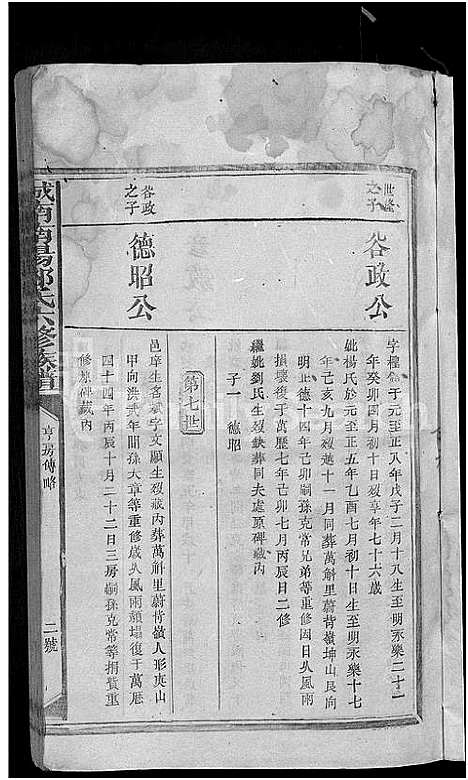 世隆之子
谷政公
字檉 于元至正八年戊子二月十八生至明永樂二十一
年癸卯四月初十日歿享年七十六歲
妣楊氏於元至正五年乙酉七月初十日生至明永樂十七
年己亥九月歿越十一月同葬萬斛里蔚背嶺坤山艮向
明正德十四年己卯嗣孫克常兄弟等重修因日久風雨
損壞復于萬歷七年己卯七月丙辰日二修
繼姚劉氏生歿缺葬同夫處原碑藏內
子一 德昭
第七世
谷政之子
德昭公
邑庠生名斌字文顯生歿藏內葬萬斛里蔚背嶺人形夷山
甲向洪武年間孫大章等重修歲久風雨頹塌復于萬厯
四十四年丙辰十月二十二日三房嗣孫克常等捐貲重
修原碑藏內
城南南陽鄧氏六修族譜
亨房傳略
二號